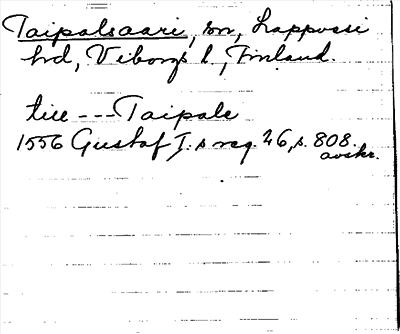 Taipalsaari, sn, Lappvesi
hd, Viborgs l, Finland.
till --- Taipale
1556 Gustaf I:s reg. 26, s. 808.
avskr.